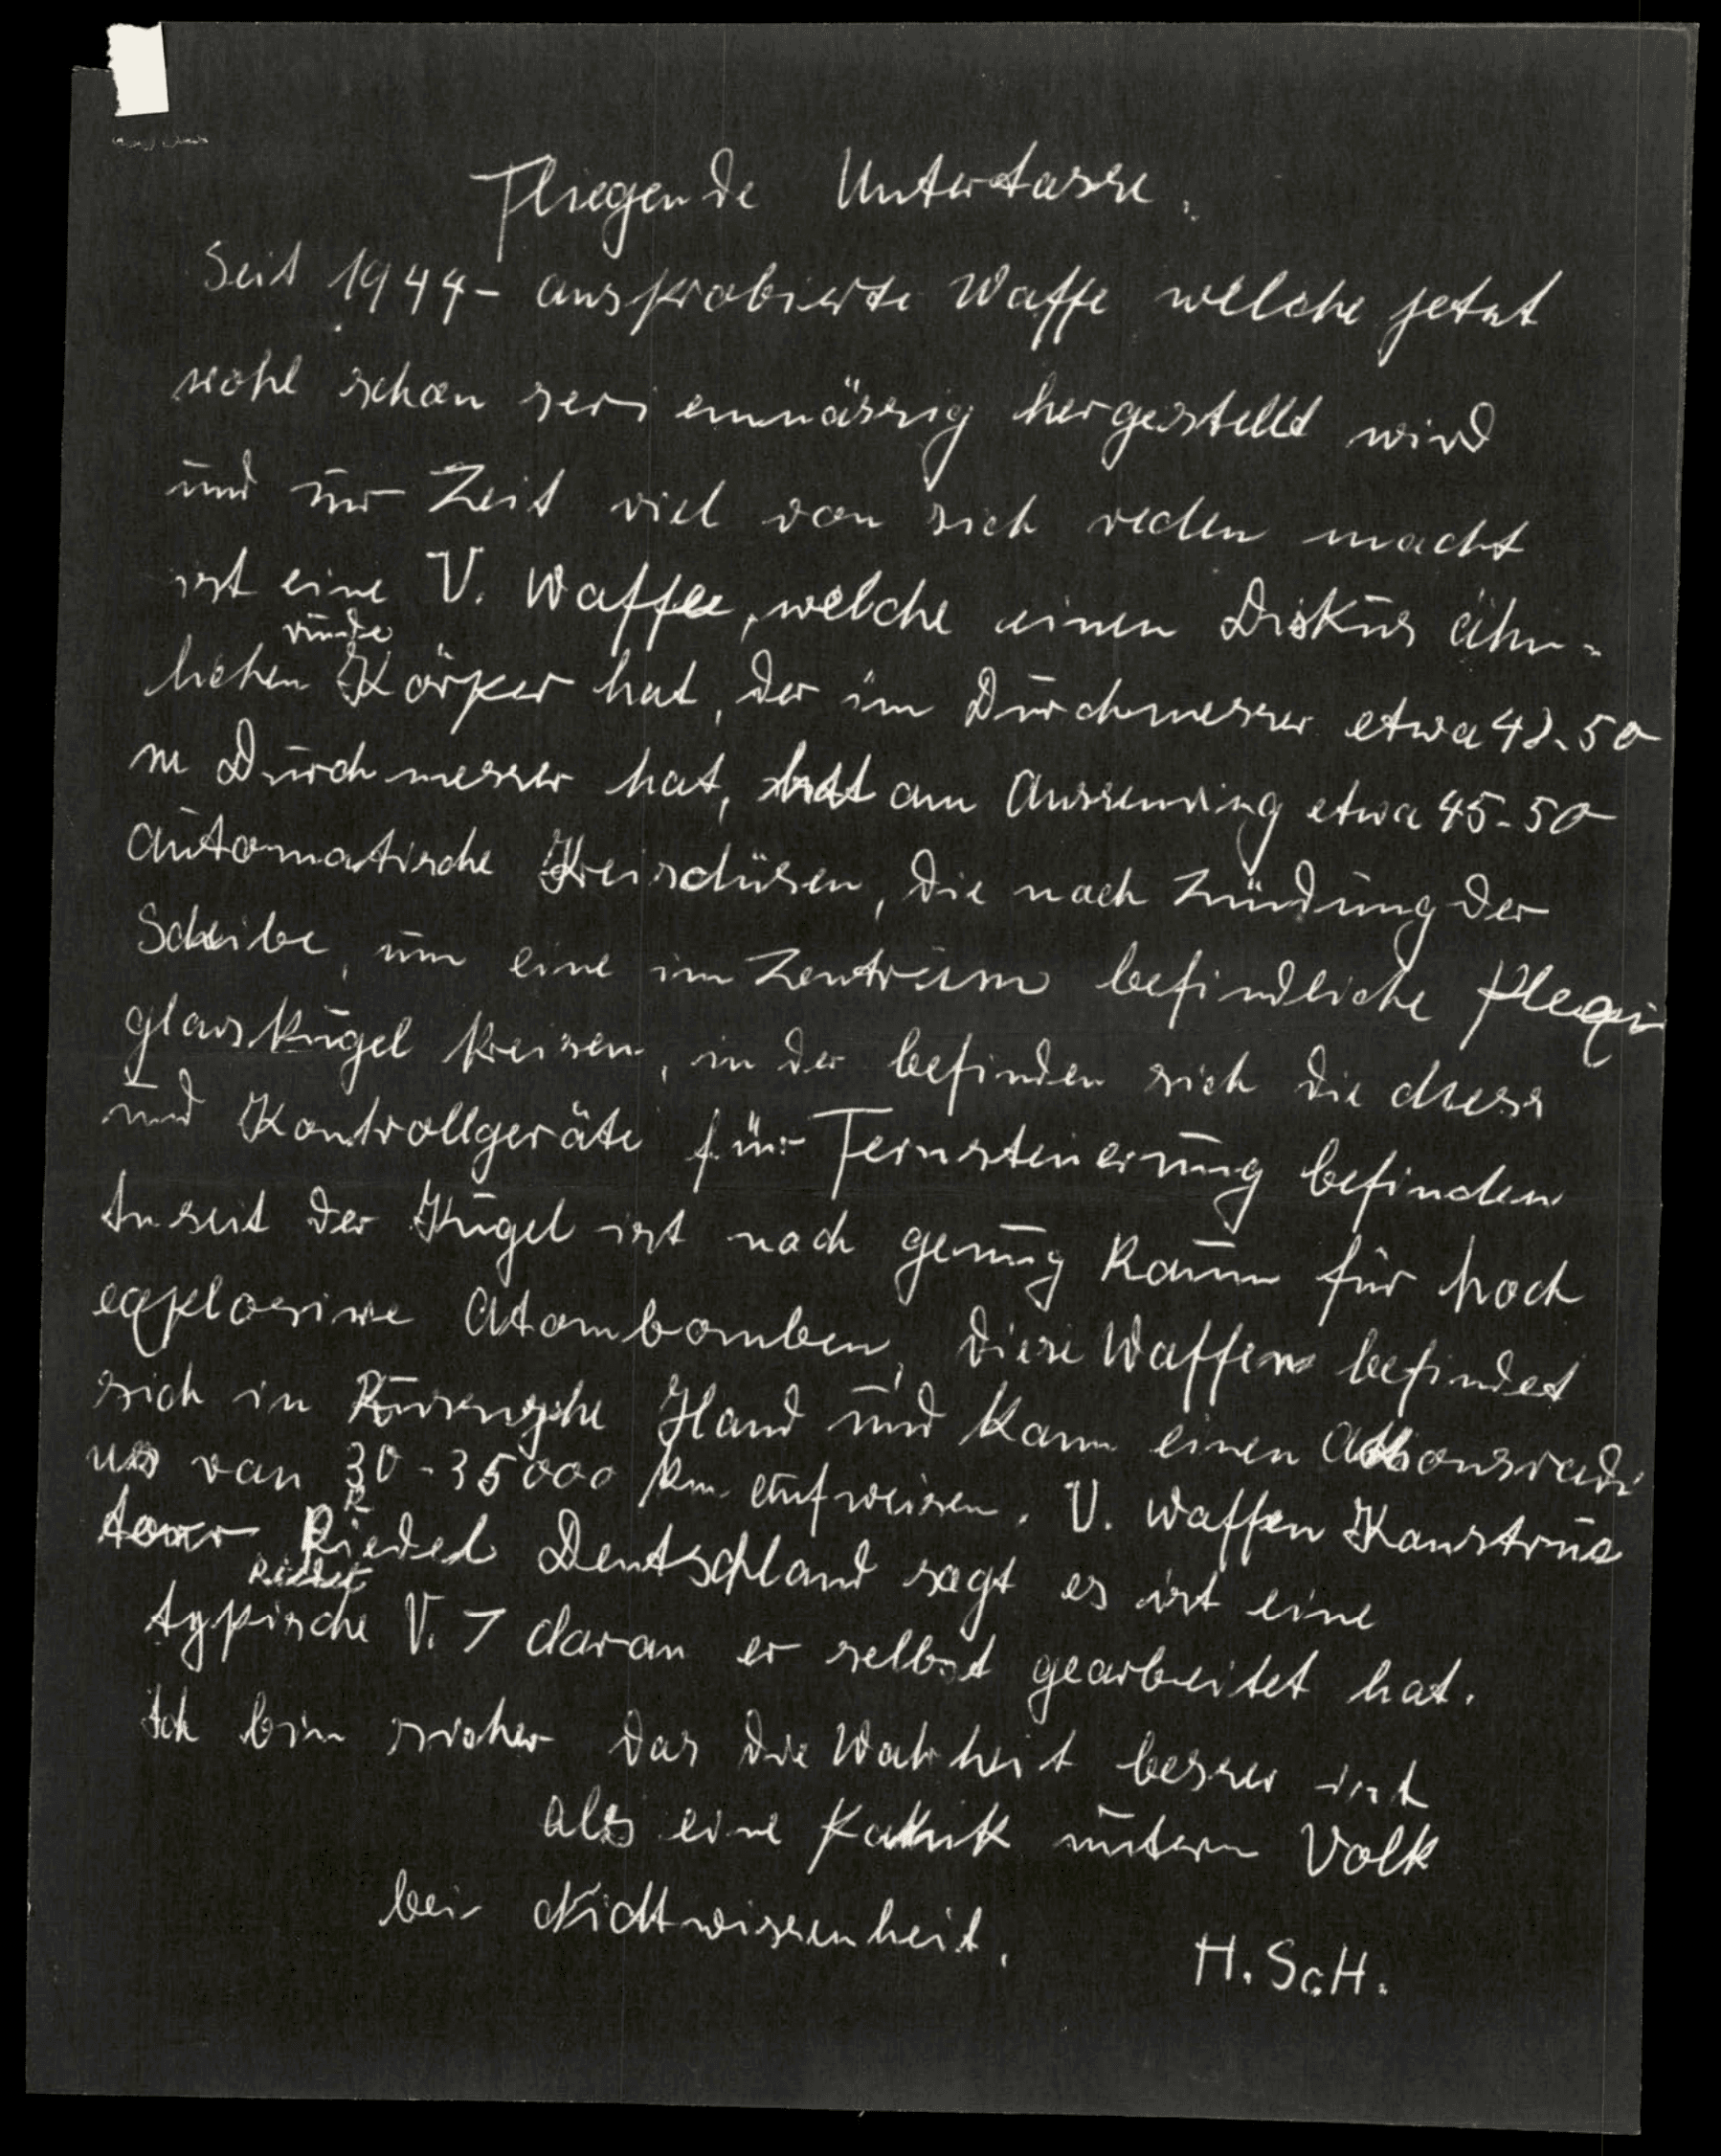 Fliegende Untertasse.
Seit 1944 - ausprobierte Waffe welche jetzt
wohl schon serienmässig hergestellt wird
und zur Zeit viel von sich reden macht
ist eine V. Waffe, welche einen Diskus ähn-
runde
lichen Körper hat, der im Durchmesser etwa 42-50
m Durchmesser hat, hat am Aussenring etwa 45-50
automatische Kreisdüsen, die nach Zündung der
Scheibe, um eine im Zentrum befindliche Plexi
glaskugel kreisen, in der befinden sich die Mess
und Kontrollgeräte für Fernsteuerung befinden
der Kugel ist noch genug Raum für hoch
explosive Atombomben, diese Waffen befindet
sich in Hand und kann einen Aktionsradi
us von 30-35000 km. aufweisen. V. Waffen Konstruk
R
Riedel Deutschland sagt es ist eine
Riedel
typische V. 7 daran er selbst gearbeitet hat.
Ich bin sicher das die Wahrheit besser ist
als eine Panik unterm Volk
bei Nichtwissenheit.
H. Sch.